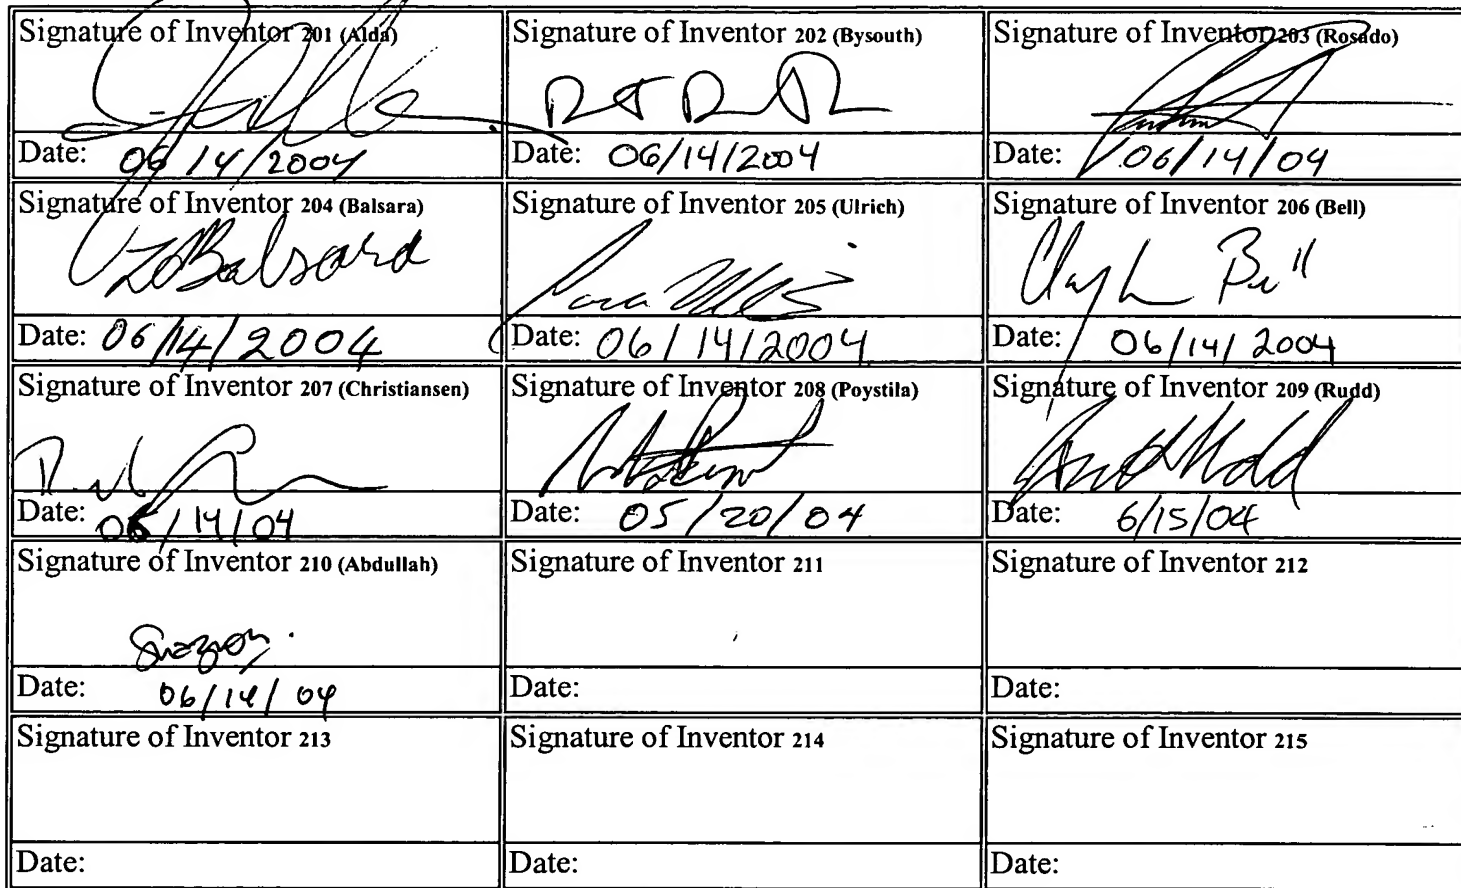 Signature of Inventor 201 (Alda)
Signature of Inventor 202 (Bysouth)
Signature of Inventor 203 (Rosado)
Date: 06/14/2004
Date: 06/14/2004
Date: 06/14/04
Signature of Inventor 204 (Balsara)
Signature of Inventor 205 (Ulrich)
Signature of Inventor 206 (Bell)
Balsara
Bell
Date: 06/14/2004
Date: 06/14/2004
Date: 06/14/2004
Signature of Inventor 207 (Christiansen)
Signature of Inventor 208 (Poystila)
Signature of Inventor 209 (Rudd)
Date: 06/14/04
Date: 05/20/04
Date: 6/15/04
Signature of Inventor 210 (Abdullah)
Signature of Inventor 211
Signature of Inventor 212
Date: 06/14/04
Date:
Date:
Signature of Inventor 213
Signature of Inventor 214
Signature of Inventor 215
Date:
Date:
Date: